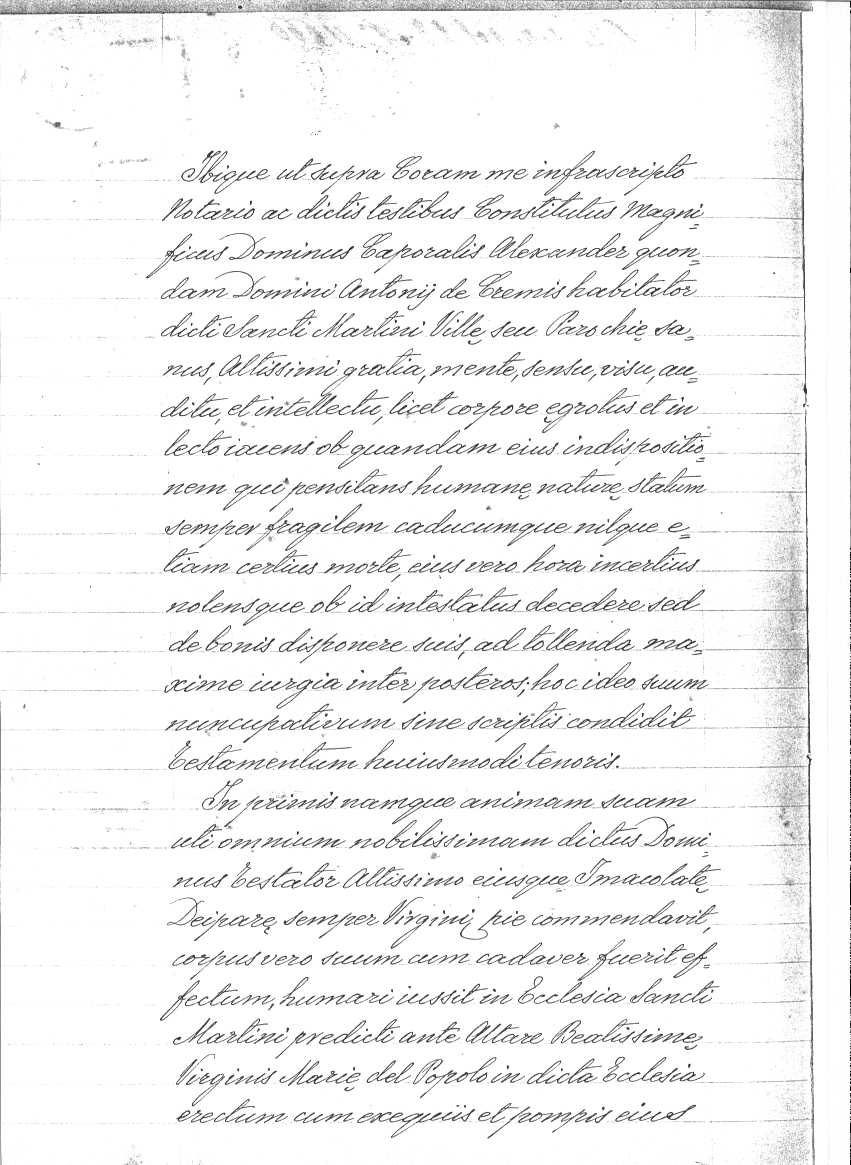 Ibique ut supra Coram me infrascripto
Notario ac dictis testibus Constitutus Magni=
ficus Dominus Caporalis Alexander quon=
dam Domini Antonij de Cremis habitator
dicti Sancti Martini Villę seu Parochię sa=
nus, Altissimi gratia, mente, sensu, visu, au=
ditu, et intellectu, licet corpore ęgrotus et in
lecto iacens ob quandam eius indispositio=
nem qui pensitans humanę naturę statum
semper fragilem caducumque nilque e=
tiam certius morte, eius vero hora incertius
nolensque ob id intestatus decedere sed
de bonis disponere suis, ad tollenda ma=
xime iurgia inter posteros; hoc ideo suum
nuncupativum sine scriptis condidit
Testamentum huiusmodi tenoris.
In primis namque animam suam
uti omnium nobilissimam dictus Domi=
nus Testator Altissimo eiusque Imacolatę
Deiparę semper Virgini pie commendavit,
corpus vero suum cum cadaver fuerit ef=
fectum, humari iussit in Ecclesia Sancti
Martini predicti ante Altare Beatissimę
Virginis Marię del Popolo in dicta Ecclesia
erectum cum exequiis et pompis eius